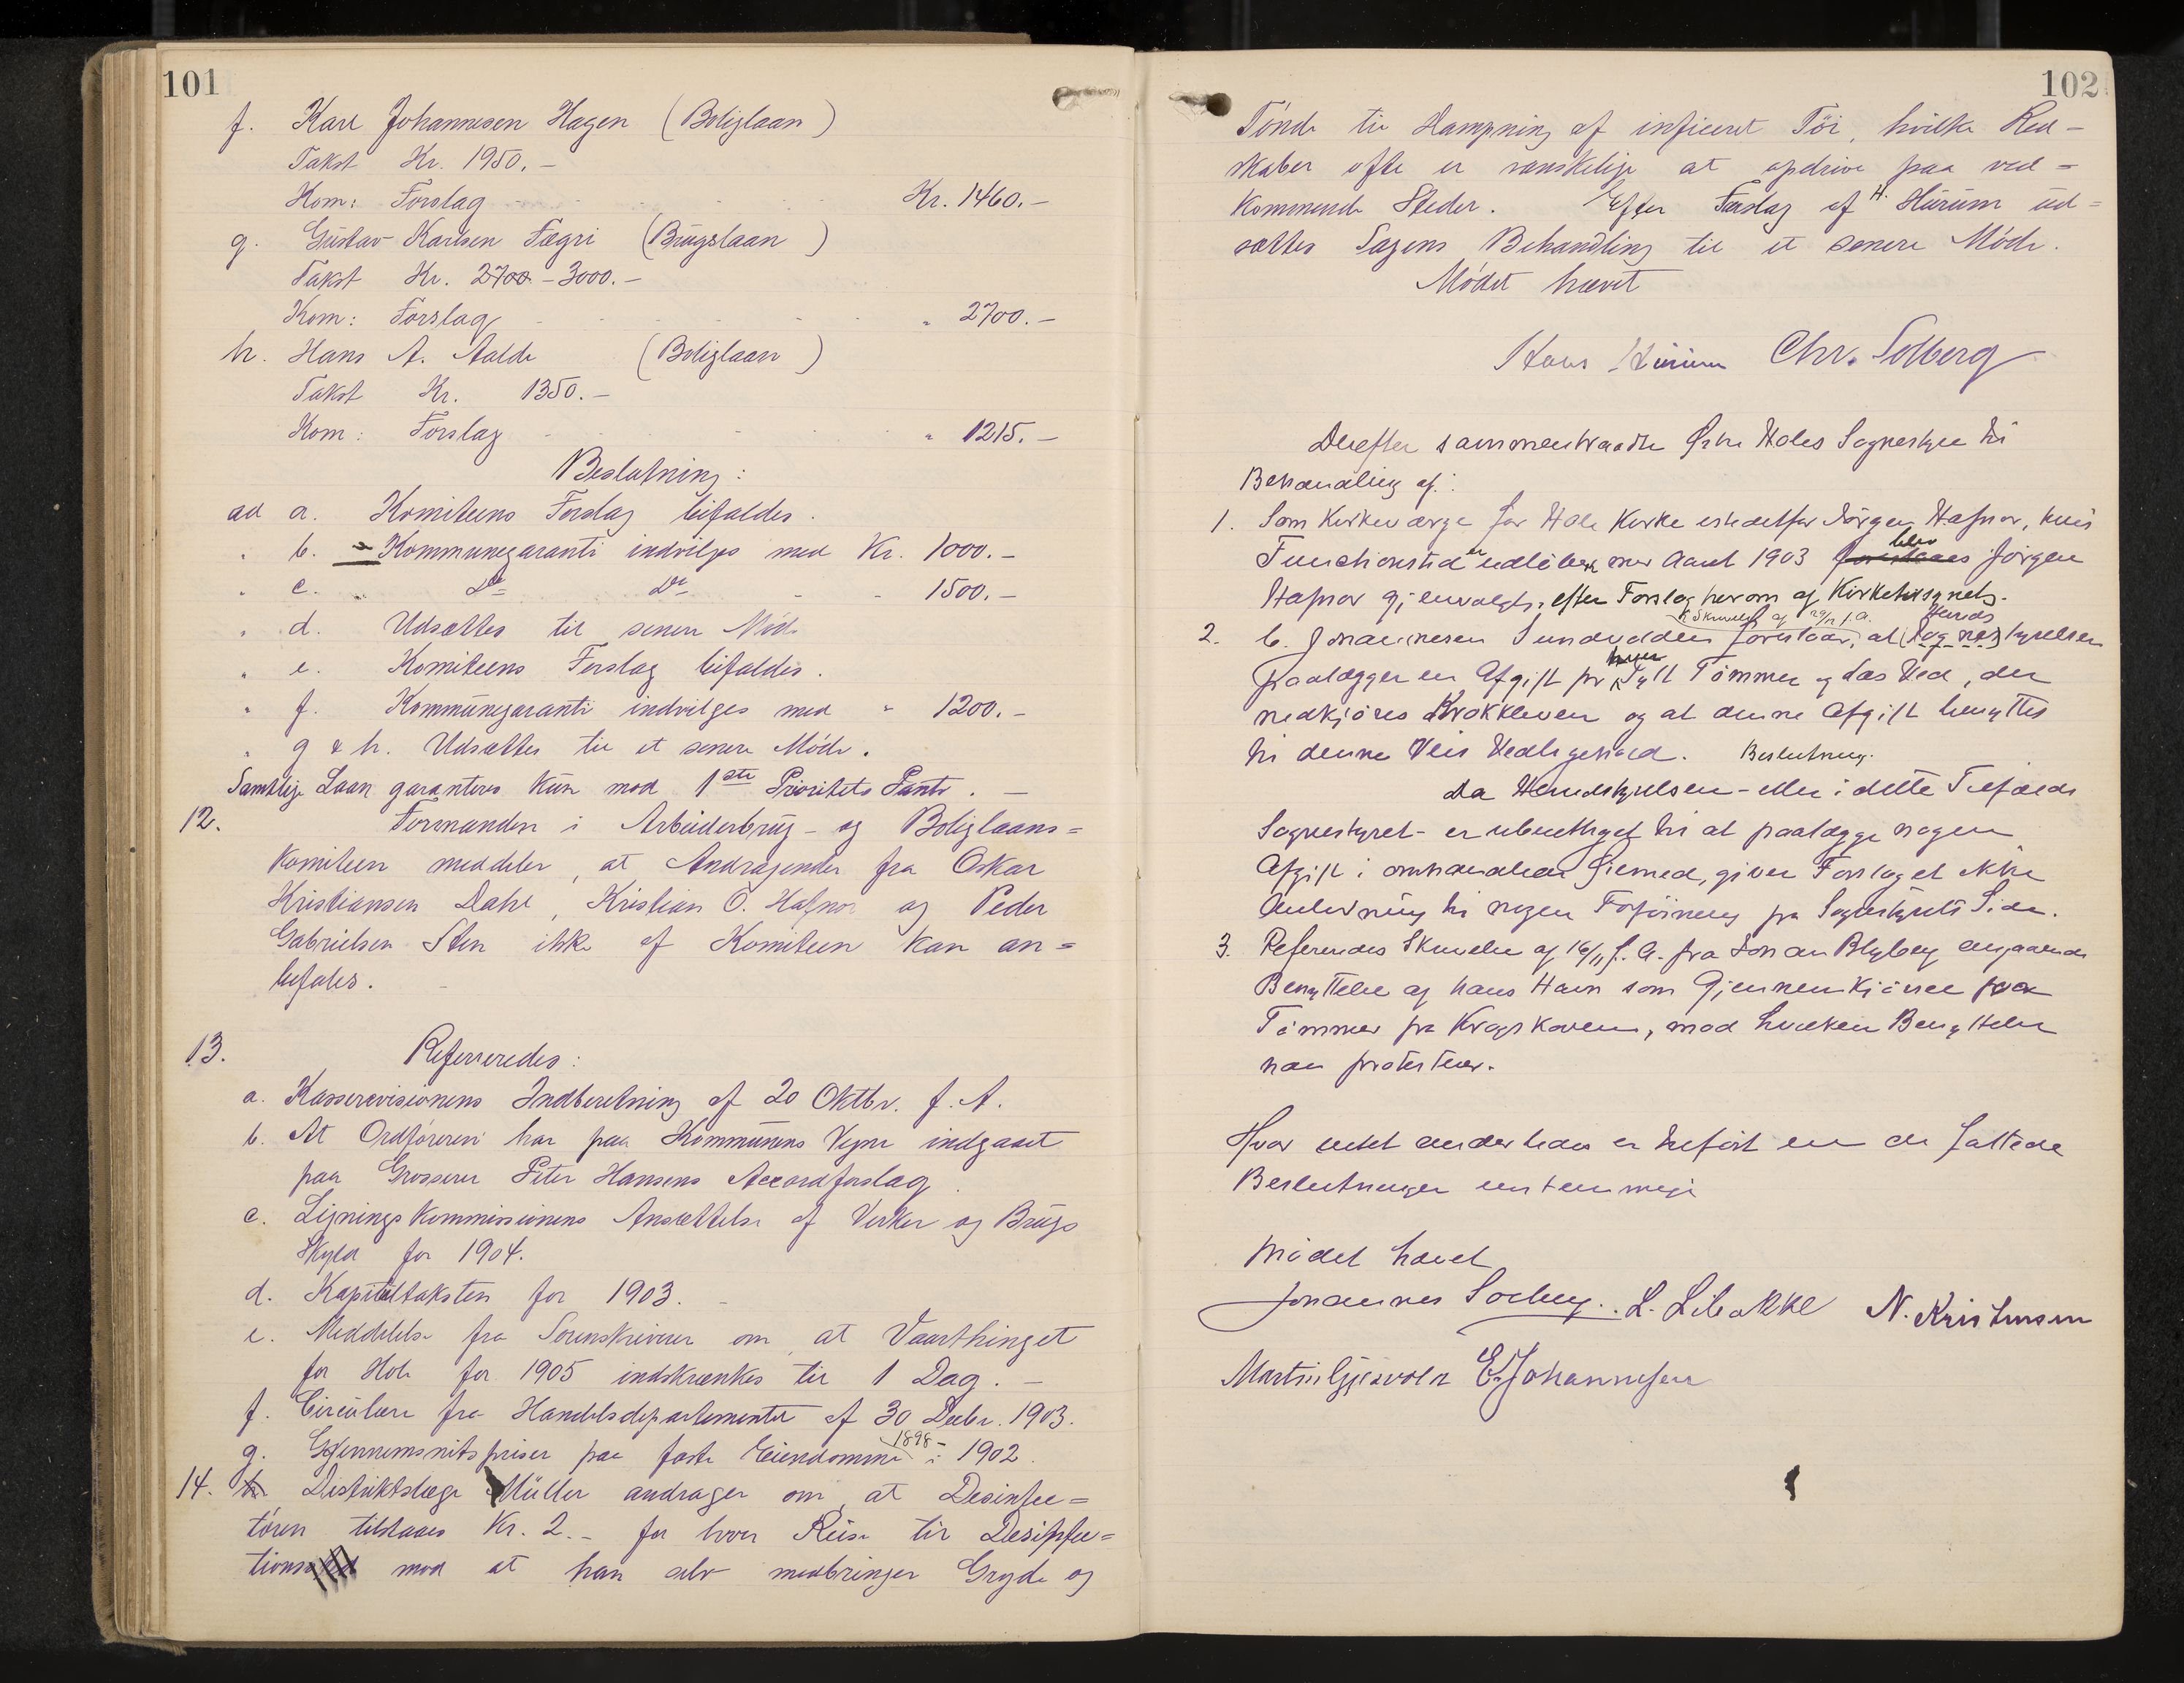 101
f. Karl Johannesen Hagen (Boliglaan)
Takst Kr. 1950.-
Kom: Forslag Kr. 1460.-
g. Gustav Karlsen Fægri (Brugslaan)
Takst Kr. 2700 - 3000.-
Kom: Forslag " 2700.-
h. Hans A. Aalde (Boliglaan)
Takst Kr. 1350.-
Kom: Forslag " 1215.-
Beslutning:
ad a. Komiteens Forslag bifaldes.
" b. Kommunegaranti indvilges med Kr. 1000.-
" c. Do Do - " 1500.-
" d. Udsættes til senere Møde
" e. Komiteens Forslag bifaldes.
" f. Kommunegaranti indvilges med " 1200.-
" g & h. Udsættes til et senere Møde.
Samtlige Laan garanteres kun mod 1ste Prioritets Pant. -
12. Formanden i Arbeiderbrug- og Boliglaans=
komiteen meddeler, at Andragender fra Oskar
Kristiansen Dahl, Kristian O. Hafnor og Peder
Gabrielsen Sten ikke af Komiteen kan an=
befales.
13. Refereredes:
a. Kasserevisionens Indberetning af 20 Oktbr. f. A.
b. At Ordføreren har paa Kommunens Vegne indgaaet
paa Grosserer Peter Hansens Accordforslag.
c. Ligningskommissionens Ansættelse af Verker og Brugs
Skyld for 1904.
d. Kapitaltaksten for 1903. -
e. Meddelelse fra Sorenskriveren om, at Vaarthinget
for Hole for 1905 indskrænkes til 1 Dag. -
f. Circulære fra Handelsdepartementet af 30 Decbr. 1903.
g. Gjennemsnitspriser paa faste Eiendomme i 1898- 1902.
14. Distriktslæge Müller andrager om, at Desinfec=
tøren tilstaaes Kr. 2.- for hver Reise til Desinfec=
tions mod at han selv medbringer Gryde og
102
Tønde til Dampning af inficeret Tøi, hvilke Red-
skaber ofte er vanskelige at opdrive paa ved=
kommende Steder. Efter Forslag af H. Hurum ud=
sættes Sagens Behandling til et senere Møde.
Mødet hævet
Hans Hurum Chr. Solberg
Derefter sammentraadte Østre Holes Sognestyre til
Behandling af:
1. Som Kirkeværge for Hole Kirke istedetfor Jørgen Hafnor, hvis
Functionstid er udløben med Aaret 1903 blev Jørgen
Hafnor gjenvalgt, efter Forslag herom af Kirketilsynet.
2. C. Johannesen Sundvolden i Skrivelse af 29/12 f. A. foreslaar, at Herredsstyrelsen
paalægger en Afgift pr Tylt Tømmer og Las Ved, der
nedkjøres Krokkleven og at denne Afgift benyttes
til denne Veis Vedligehold. Beslutning.
Da Herredstyrelsen - eller i dette Tilfælde
Sognestyret - er uberettiget til at paalægge nogen
Afgift i omhandlede Øiemed, giver Forslaget ikke
Anledning til nogen Føføining fra Sognestyrets Side.
3. Refereredes Skrivelse af 16/11 f. A. fra Johan Blyberg angaaende
Benyttelse af hans Havn som Gjennemkjørsel for
Tømmer fra Krogskoven, mod hvilken Benyttelse
han protesterer.
Hvor intet anderledes er tilført er de fattede
Beslutninger enstemmige
Mødet hævet
Johannes Solberg. L. Libakke N. Kristensen
Martin Gjesvold E. Johannesen